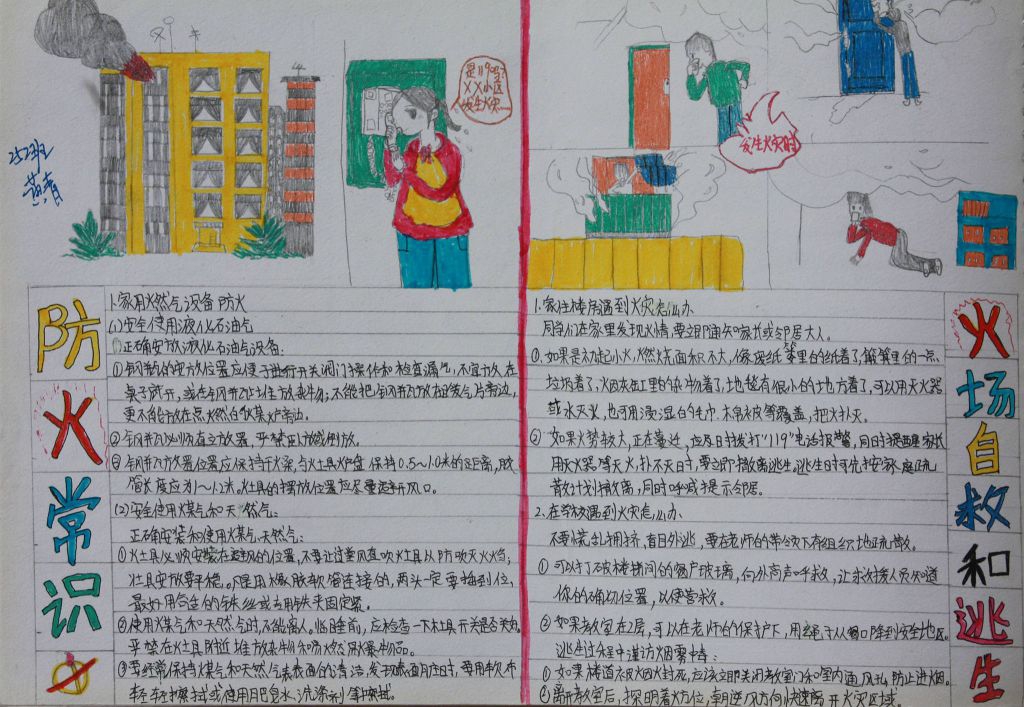 252班
黄青
是119吗?
XX小区
人发生火灾...
发生火灾时
防火常识
1.家用燃气设备防火
(1)安全使用液化石油气
正确安放液化石油气设备:
①钢瓶的安放位置应便于进行开关阀门操作和检查漏气,不宜放在
桌子前开,或在钢瓶上堆放杂物;不能把钢瓶放在暖气片旁边,
更不能放在点燃的火旁边。
②钢瓶必须直立放置,严禁卧放或倒放。
③钢瓶放置位置应保持干燥,与灶具炉盘保持0.5~1.0米的距离,胶
管长度应为1~1.2米,灶具的摆放位置应尽量避开风口。
(2)安全使用煤气和天然气:
正确安装和使用煤气、天然气:
①灶具必须安装在通风的位置,不要让过堂风直吹灶具以防吹灭火焰;
灶具安放要平稳。凡是用橡胶软管连接的,两头一定要插到位,
最好用合适的铁丝或专用铁夹固定紧。
②使用煤气和天然气时,不能离人。临睡前,应检查一下灶具开关是否关好。
严禁在灶具附近堆放杂物和易燃易爆物品。
③要经常保持煤气和天然气表表面的清洁,发现表面脏时,要用软布
轻轻擦拭或使用肥皂水、洗涤剂等擦拭。
火场自救和逃生
1.家住楼房遇到火灾怎么办
同学们在家里发现火情,要立即通知家长或邻居大人。
①如果是初起小火,燃烧面积不大,像废纸篓里的纸着了,簸箕里的一点
垃圾着了,烟灰缸里的杂物着了,地毯有很小的地方着了,可以用灭火器
或水灭火,也可用浸湿的毛巾、棉被等覆盖,把火扑灭。
②如果火势较大,正在蔓延,应及时拨打“119”电话报警,同时提醒家长
用灭火器等灭火,扑不灭时,要立即撤离逃生。逃生时可先按家庭疏
散计划撤离,同时呼喊提示邻居。
2.在学校遇到火灾怎么办
不要慌乱拥挤,盲目外逃,要在老师的带领下有组织地疏散。
①可以打破楼梯间的窗户玻璃,向外高声呼救,让救援人员知道
你的确切位置,以便营救。
②如果教室在2层,可以在老师的保护下,用绳子从窗口降到安全地区。
逃生过程中谨访烟雾中毒:
①如果楼道被烟火封死,应该立即关闭教室门和室内通风孔,防止进烟。
②离开教室后,探明着火方位,朝逆风方向快速离开火灾区域。